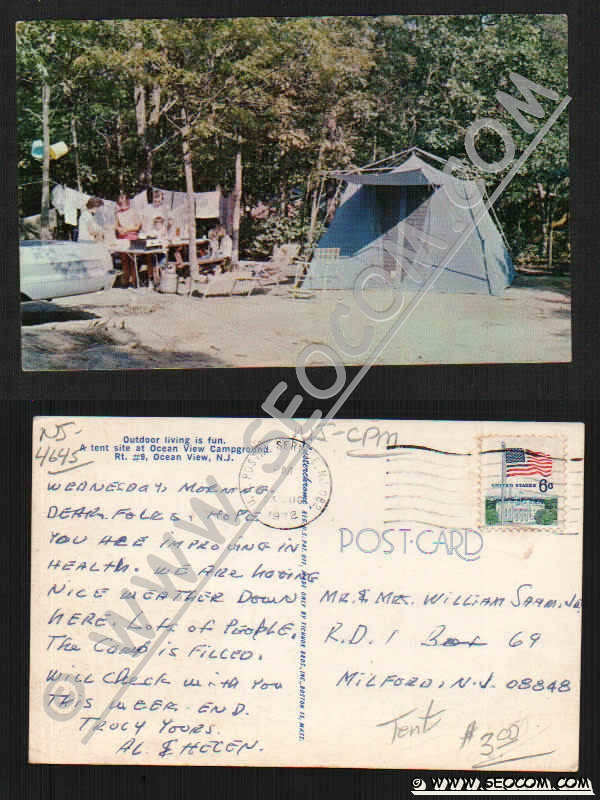 © WWW.SEOCOM.COM
NJ-
4645
NJ-CPM
Outdoor living is fun.
A tent site at Ocean View Campground.
Rt. #9, Ocean View, N.J.
U.S. POSTAL SERVICE, NJ 082
PM
AUG
1972
UNITED STATES 6c
WEDNESDAY, MORNING
DEAR, FOLKS, HOPE
YOU ARE IMPROVING IN
HEALTH. WE ARE HAVING
NICE WEATHER DOWN
HERE. LOTS OF PEOPLE.
The CAMP IS FILLED.
WILL CHECK WITH YOU
THIS WEEK-END.
TRULY YOURS.
AL. & HELEN.
REG. U.S. PAT. OFF., MADE ONLY BY TICHNOR BROS., INC., BOSTON 15, MASS.
POST-CARD
MR. & MRS. WILLIAM
R.D. 1 Box 69
MILFORD, N.J. 08848
Tent
$3.00
© WWW.SEOCOM.COM